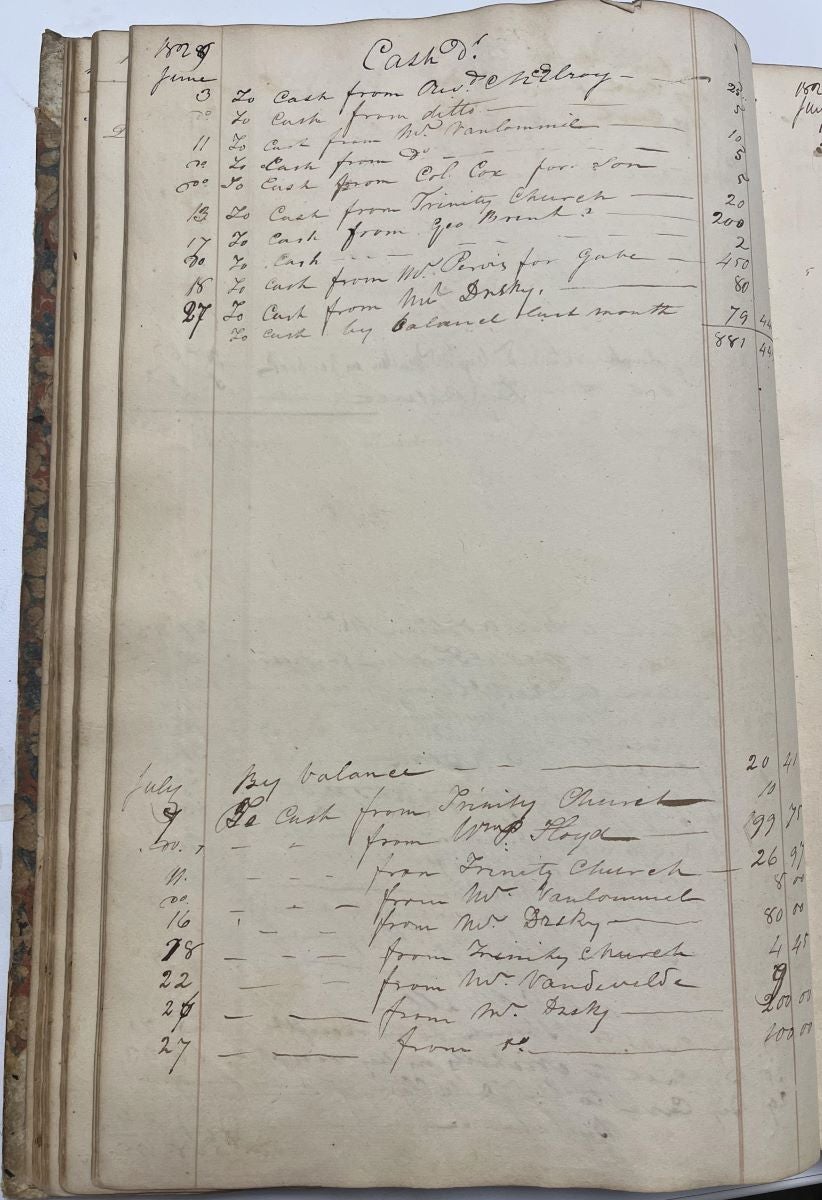 1829 Cash Dr.
June
3 To Cash from Revd. McElroy 25
do To Cash from ditto 5
11 To Cash from Mr. Vanlommel 10
do To Cash from Do 5
do To Cash from Col. Cox for Son 5
13 To Cash from Trinity Church 20
17 To Cash from Geo Brent 200
do To Cash 2
18 To Cash from Mr. Pervis for Gabe 450
27 To Cash from Mr. Drsky. 80
To Cash by balance last month 79 44
881 44
July By balance 20 41
7 To Cash from Trinity Church 10
do. from Wm. Floyd 199 75
11. from Trinity Church 26 97
do. from Mr. Vanlommel 8 00
16 from Mr. Drsky 80 00
18 from Trinity Church 4 45
22 from Mr. Vandevelde 9
26 from Mr. Drsky 200 00
27 from do. 100 00
182